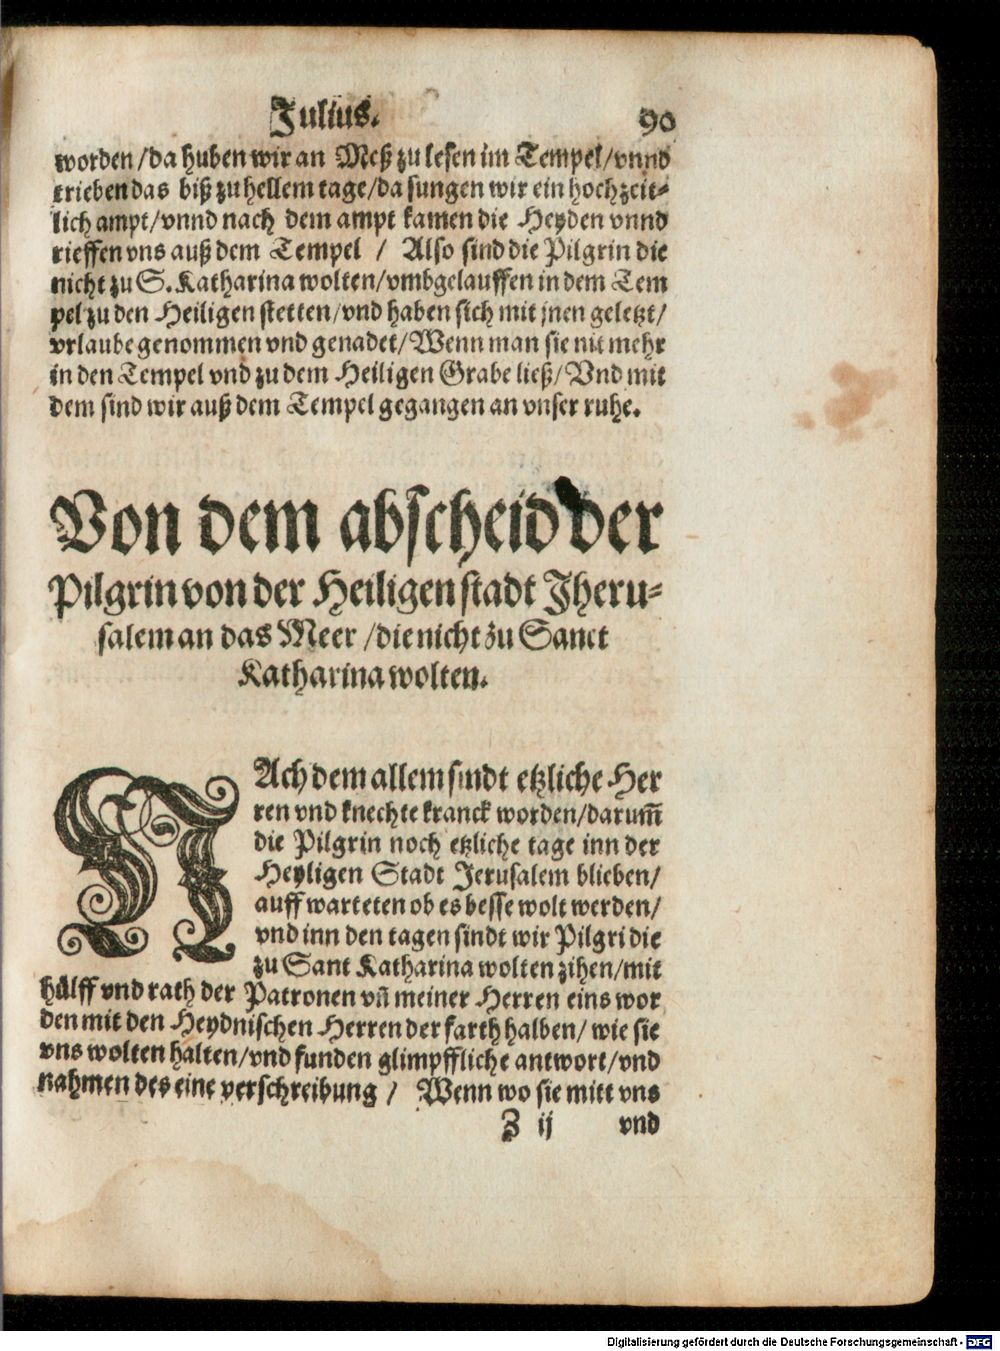 Julius. 90
worden/da huben wir an Meß zu lesen im Tempel/vnnd
trieben das biß zu hellem tage/da sungen wir ein hochzeit-
lich ampt/vnnd nach dem ampt kamen die Heyden vnnd
rieffen vns auß dem Tempel / Also sind die Pilgrin die
nicht zu S. Katharina wolten/vmbgelauffen in dem Tem
pel zu den Heiligen stetten/vnd haben sich mit jnen geletzt/
vrlaube genommen vnd genadet/Wenn man sie nit mehr
in den Tempel vnd zu dem Heiligen Grabe ließ/Vnd mit
dem sind wir auß dem Tempel gegangen an vnser ruhe.
Von dem abscheid der
Pilgrin von der Heiligen stadt Jheru-
salem an das Meer /die nicht zu Sanct
Katharina wolten.
NAch dem allem sindt etzliche Her
ren vnd knechte kranck worden/darum̄
die Pilgrin noch etzliche tage inn der
Heyligen Stadt Jerusalem blieben/
auff warteten ob es besse wolt werden/
vnd inn den tagen sindt wir Pilgri die
zu Sant Katharina wolten zihen/mit
hülff vnd rath der Patronen vn̄ meiner Herren eins wor
den mit den Heydnischen Herren der farth halben/ wie sie
vns wolten halten/vnd funden glimpffliche antwort/vnd
nahmen des eine verschreibung / Wenn wo sie mitt vns
Z ij vnd
Digitalisierung gefördert durch die Deutsche Forschungsgemeinschaft - DFG